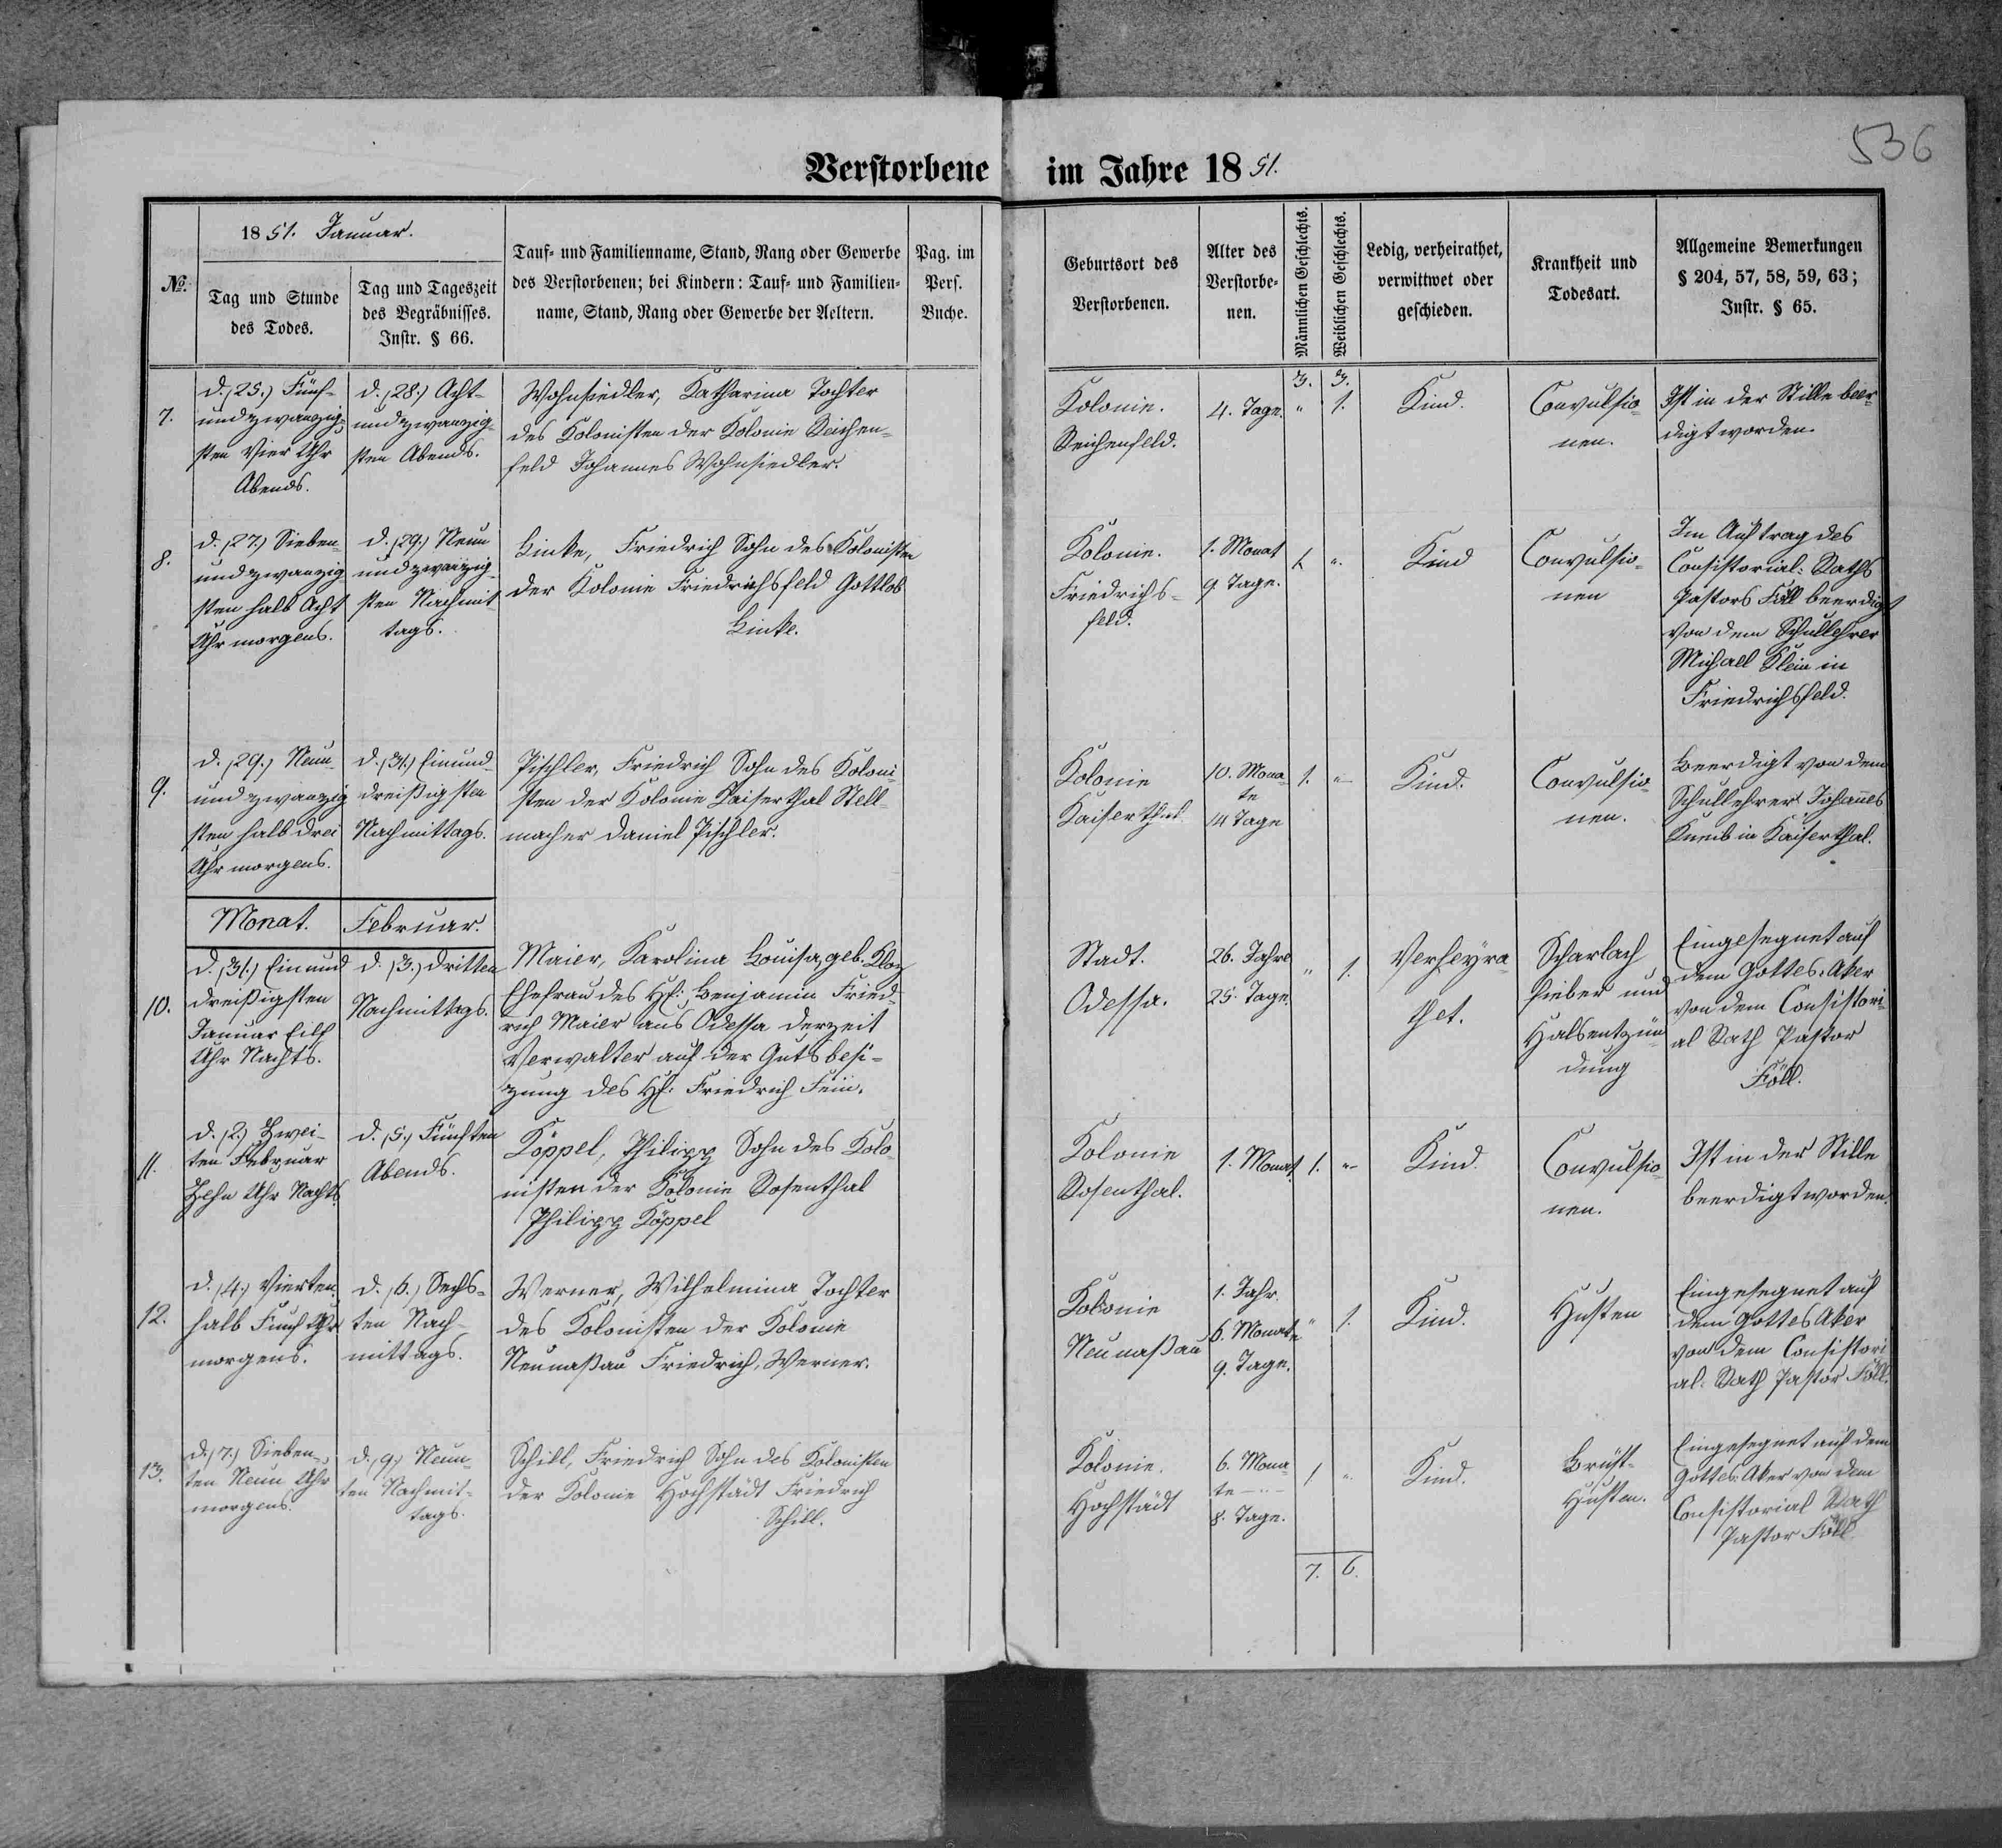 536
Verstorbene im Jahre 1851.
No.
1851. Januar.
Tag und Stunde
des Todes.
Tag und Tageszeit
des Begräbnisses.
Instr. § 66.
Tauf- und Familienname, Stand, Rang oder Gewerbe
des Verstorbenen; bei Kindern: Tauf- und Familien-
name, Stand, Rang oder Gewerbe der Aeltern.
Pag. im
Pers.
Buche.
Geburtsort des
Verstorbenen.
Alter des
Verstorbe-
nen.
Männlichen Geschlechts.
Weiblichen Geschlechts.
Ledig, verheirathet,
verwittwet oder
geschieden.
Krankheit und
Todesart.
Allgemeine Bemerkungen
§ 204, 57, 58, 59, 63;
Instr. § 65.
3. 3.
7.
d. (25.) Fünf-
undzwanzig-
sten Vier Uhr
Abends.
d. (28.) Acht-
undzwanzig-
sten Abends.
Wohnsiedler, Katharina Tochter
des Kolonisten der Kolonie Reichen-
feld Johannes Wohnsiedler.
Kolonie.
Reichenfeld.
4. Tage.
" 1.
Kind.
Convulsio-
nen.
Ist in der Stille beer-
digt worden.
8.
d. (27.) Sieben-
undzwanzig
sten halb Acht
Uhr morgens.
d. (29.) Neun
undzwanzig-
sten Nachmit
tags.
Linke, Friedrich Sohn des Kolonisten
der Kolonie Friedrichsfeld Gottlob
Linke.
Kolonie.
Friedrichs-
feld.
1. Monat
9. Tage.
1. "
Kind
Convulsio-
nen
Im Auftrag des
Consistorial: Raths
Pastors Föll beerdigt
von dem Schullehrer
Michael Klein in
Friedrichsfeld.
9.
d. (29.) Neun-
undzwanzig
sten halb drei
Uhr morgens.
d. (31.) Einund-
dreißigsten
Nachmittags.
Pischler, Friedrich Sohn des Koloni-
sten der Kolonie Kaiserthal Stell-
macher Daniel Pischler.
Kolonie
Kaiserthal.
10. Mona-
te
14 Tage
1. "
Kind.
Convulsio-
nen.
Beerdigt von dem
Schullehrer Johañes
Kneib in Kaiserthal.
Monat. Februar.
10.
d. (31.) Einund
dreißigsten
Januar Eilf
Uhr Nachts.
d. (3.) dritten
Nachmittags.
Maier, Karolina Louisa, geb. Kloz
Ehefrau des H: Benjamin Fried-
rich Maier aus Odessa derzeit
Verwalter auf der Gutsbesi-
zung des H: Friedrich Fein.
Stadt.
Odessa.
26. Jahre
25. Tage.
" 1.
Verheyra-
thet.
Scharlach
fieber und
Halsentzün-
dung
Eingesegnet auf
dem Gottes-Aker
von dem Consistori-
al Rath Pastor
Föll.
11.
d. (2.) Zwei-
ten Februar
Zehn Uhr Nachts.
d. (5.) Fünften
Abends.
Köppel, Philipp Sohn des Kolo-
nisten der Kolonie Rosenthal
Philipp Köppel
Kolonie
Rosenthal.
1. Monat
1. "
Kind.
Convulsio-
nen.
Ist in der Stille
beerdigt worden.
12.
d. (4.) Vierten
halb Fünf Uhr
morgens.
d. (6.) Sechs-
ten Nach-
mittags.
Werner, Wilhelmina Tochter
des Kolonisten der Kolonie
Neunaßau Friedrich Werner.
Kolonie
Neunaßau
1. Jahr.
6. Monate
9. Tage.
" 1.
Kind.
Husten
Eingesegnet auf
dem Gottes Aker
von dem Consistori
al. Rath Pastor Föll.
13.
d. (7.) Sieben-
ten Neun Uhr
morgens.
d. (9.) Neun-
ten Nachmit-
tags.
Schill, Friedrich Sohn des Kolonisten
der Kolonie Hochstädt Friedrich
Schill.
Kolonie.
Hochstädt
6. Mona-
te
8. Tage.
1. "
Kind.
Brust-
Husten.
Eingesegnet auf dem
Gottes-Aker von dem
Consistorial Rath
Pastor Föll
7. 6.